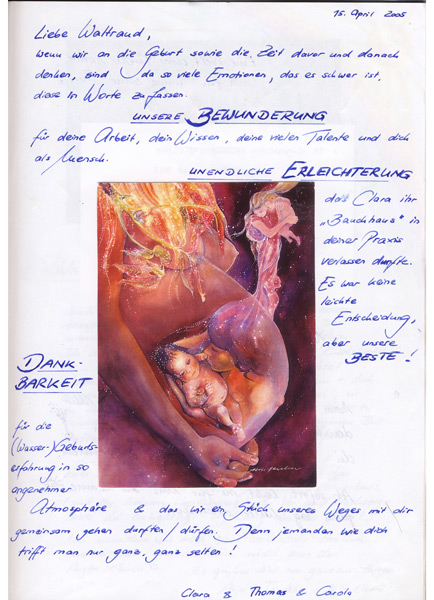 15. April 2005
Liebe Waltraud,
wenn wir an die Geburt sowie die Zeit davor und danach
denken, sind da so viele Emotionen, das es schwer ist,
diese in Worte zu fassen.
UNSERE BEWUNDERUNG
für deine Arbeit, dein Wissen, deine vielen Talente und dich
als Mensch.
UNENDLICHE ERLEICHTERUNG
daß Clara ihr
„Bauchhaus" in
deiner Praxis
verlassen durfte.
Es war keine
leichte
Entscheidung,
aber unsere
BESTE!
DANK-
BARKEIT
für die
(Wasser-)Geburts-
erfahrung in so
angenehmer
Atmosphäre & das wir ein Stück unseres Weges mit dir
gemeinsam gehen durften/dürfen. Denn jemanden wie dich
trifft man nur ganz, ganz selten!
Clara & Thomas & Carola